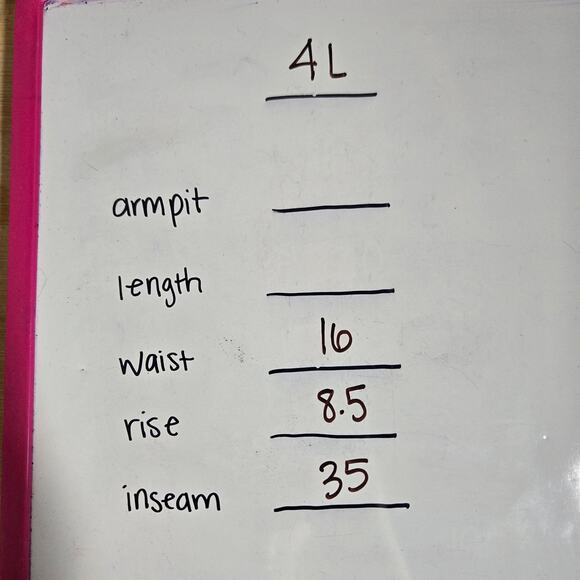 4L
armpit
length
waist 16
rise 8.5
inseam 35